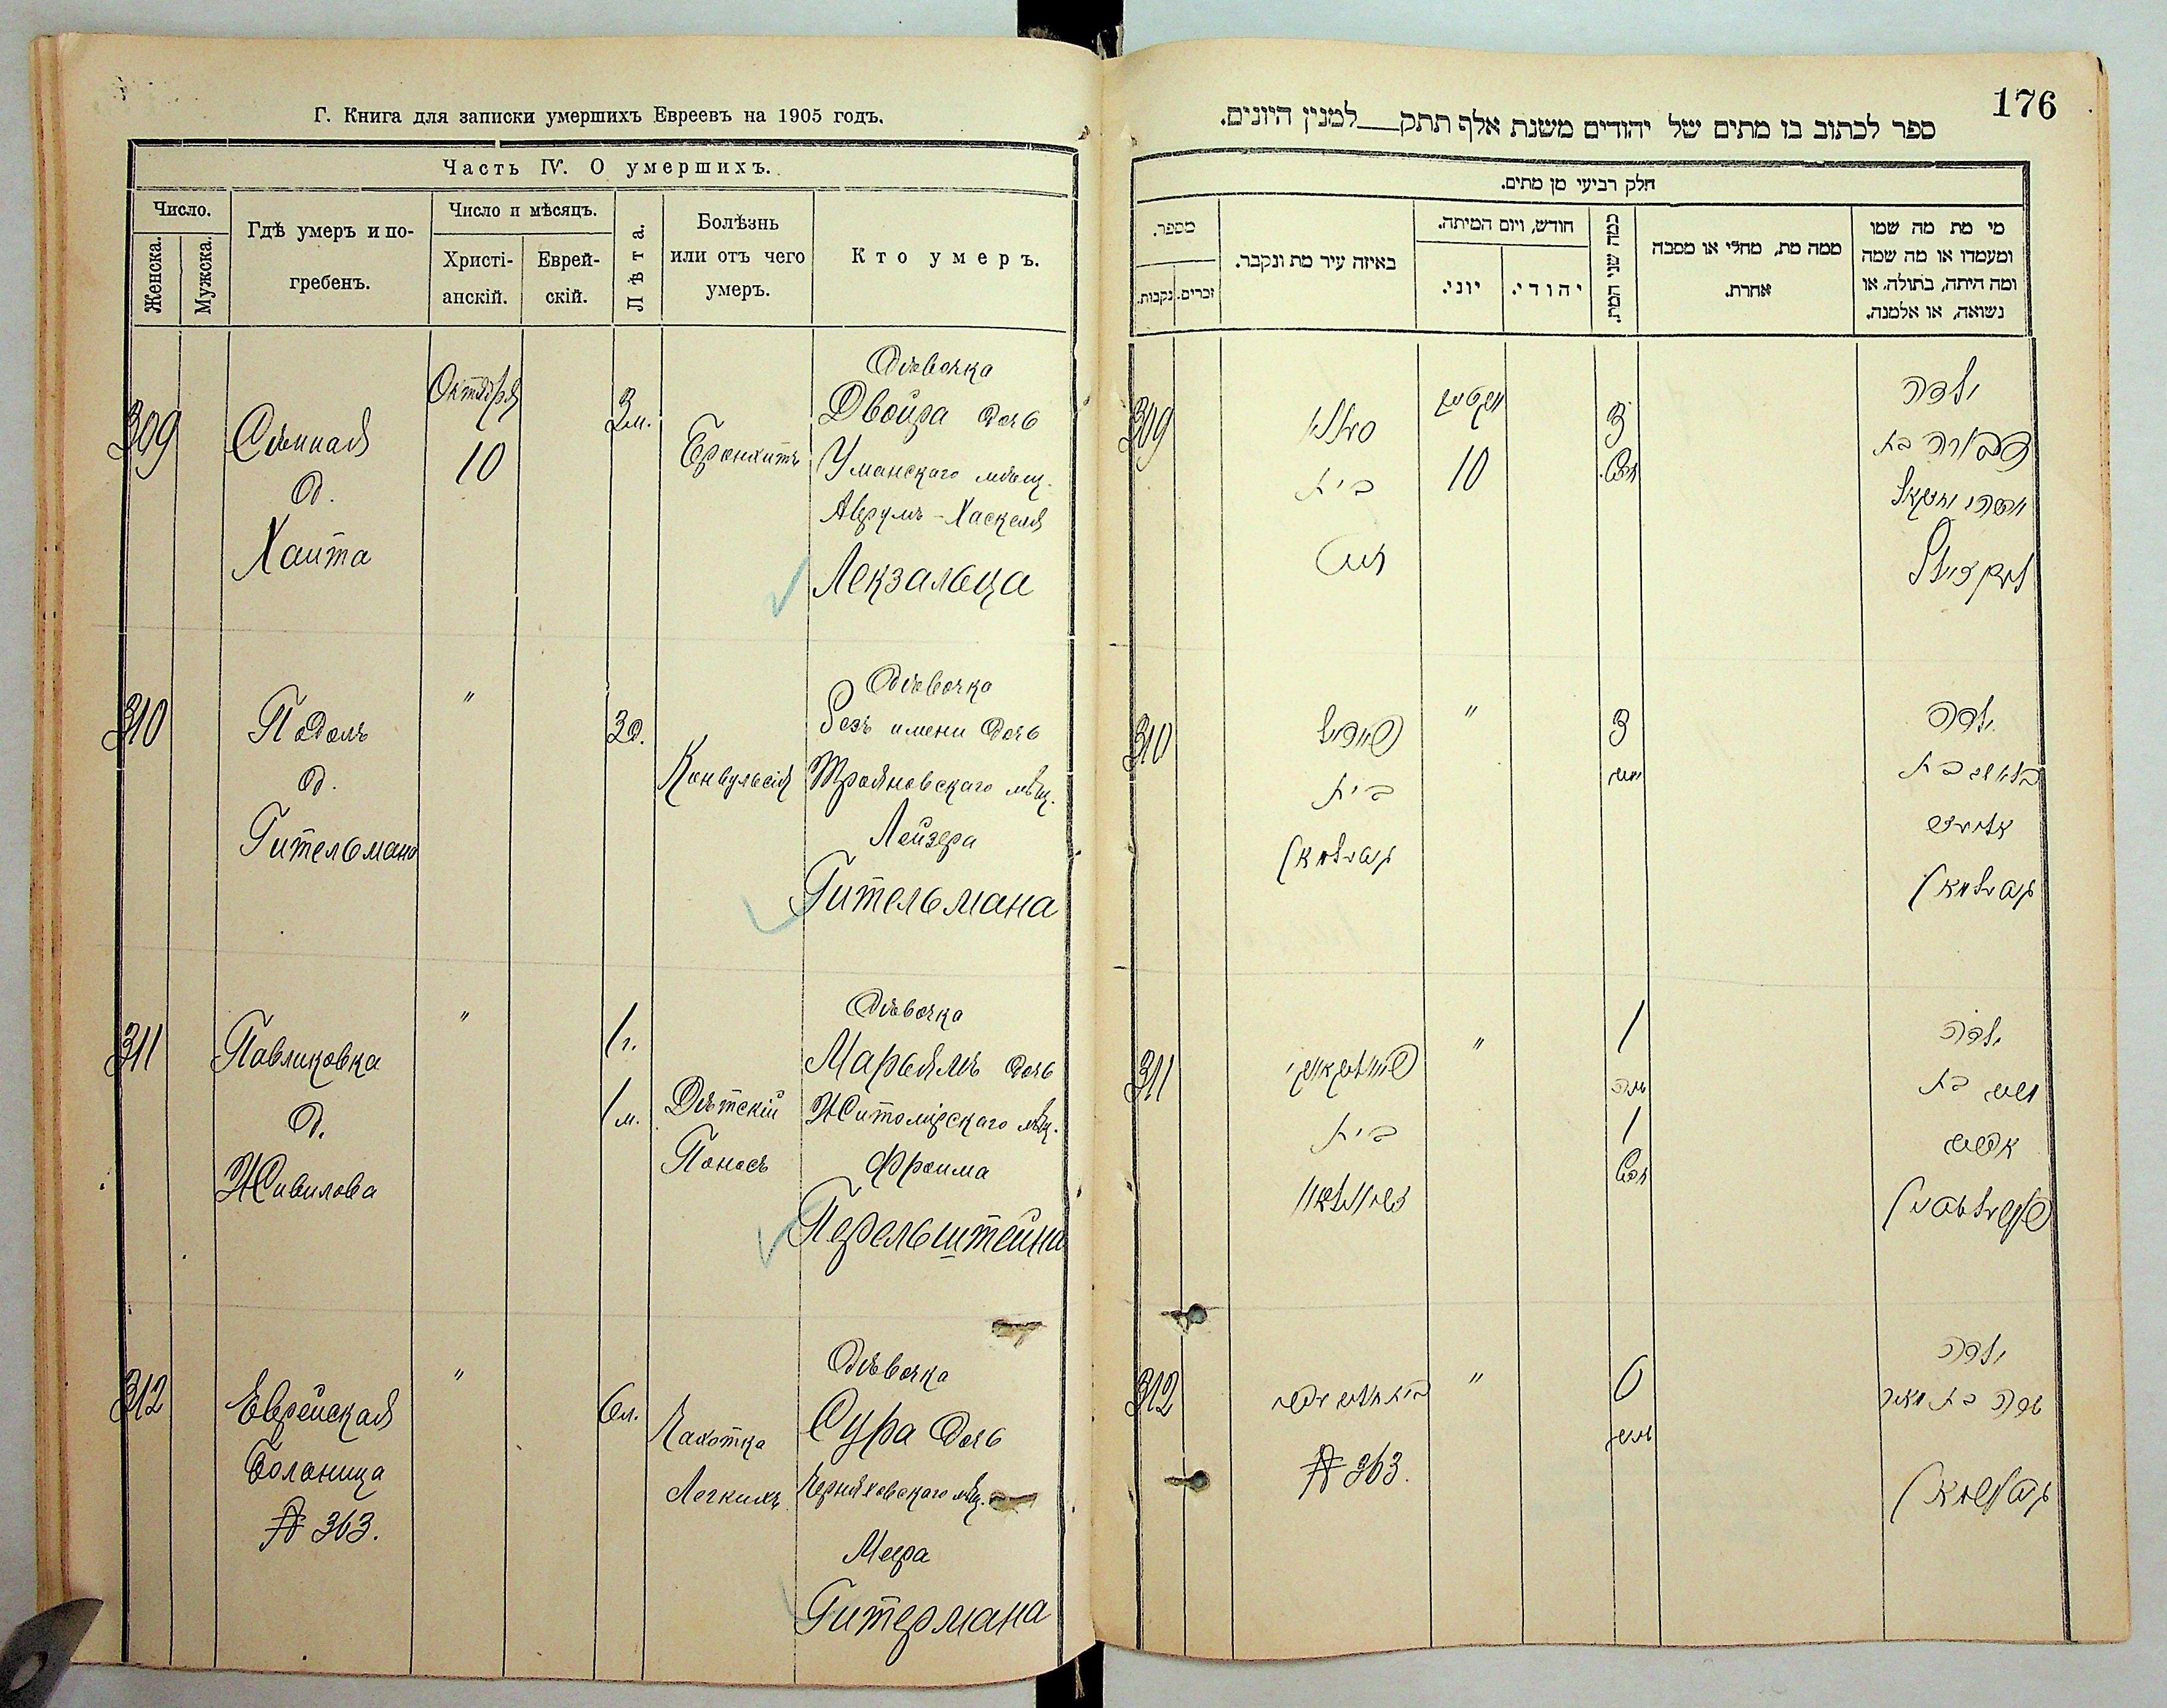 Г. Книга для записки умершихъ Евреевъ на 1905 годъ.
Часть IV. О умершихъ.
Число.
Женска.
Мужска.
Гдѣ умеръ и по-
гребенъ.
Число и мѣсяцъ.
Христі-
анскій.
Еврей-
скій.
Лѣта.
Болѣзнь
или отъ чего
умеръ.
Кто умеръ.
309
Сѣнная
д.
Хаита
Октября
10
3 м.
Бронхитъ
Дѣвочка
Двойра дочь
Уманскаго мѣщ.
Аврумъ-Хаскеля
Лекзальца
310
Подолъ
д.
Гительмана
"
3 д.
Конвульсія
Дѣвочка
Безъ имени дочь
Трояновскаго мѣщ.
Лейзера
Гительмана
311
Павликовка
д.
Живилова
"
1 г.
1 м.
Дѣтскій
Поносъ
Дѣвочка
Марьямъ дочь
Житомірскаго мѣщ.
Фроима
Перельштейна
312
Еврейская
Больница
№ 363.
"
6 л.
Чахотка
Легкихъ
Дѣвочка
Сура дочь
Черняховскаго мѣщ.
Меера
Гитермана
176
ספר לכתוב בו מתים של יהודים משנת אלף תתק__למנין היונים.
חלק רביעי מן מתים.
מספר.
נקבות.
זכרים.
באיזה עיר מת ונקבר.
חודש, ויום המיתה.
יוני.
יהודי.
כמה שני המת.
ממה מת, מחלי או מסבה
אחרת.
מי מת מה שמו
ומעמדו או מה שמה
ומה היתה, בתולה, או
נשואה, או אלמנה.
309
בית
10
3
ילדה
דבורה בת
310
בית
"
3
ילדה
בת
גיטעלמאן
311
בית
"
1
שנה
1
חדש
ילדה
מרים בת
אפרים
פערעלשטיין
312
№ 363.
"
6
שנים
ילדה
שרה בת מאיר
גיטערמאן